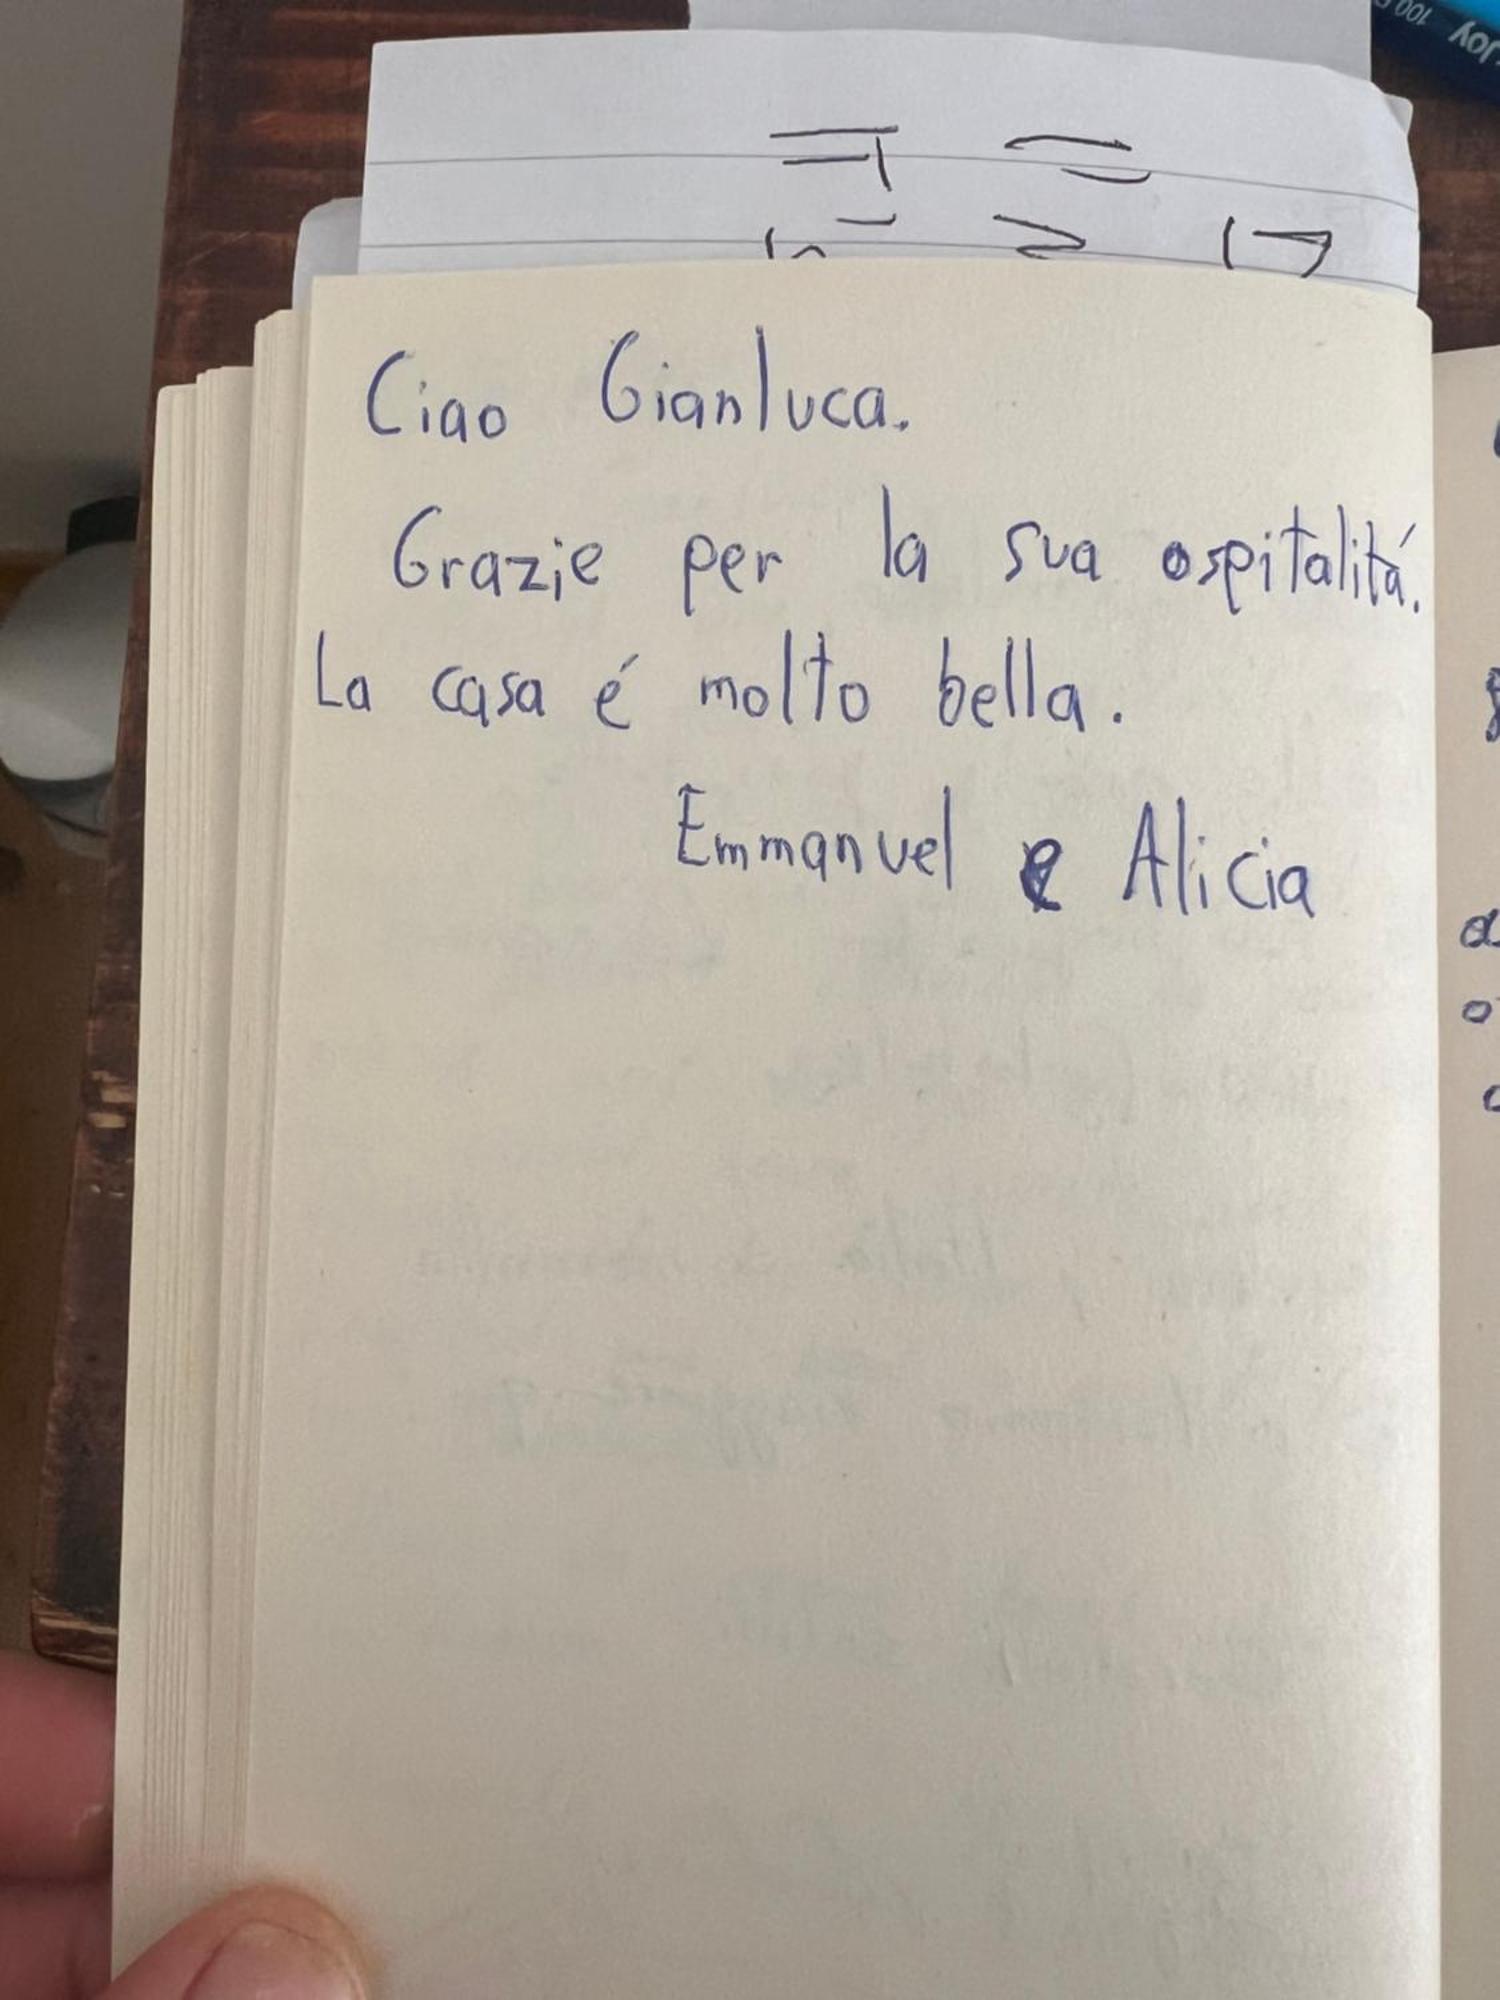 Joy 100
Ciao Gianluca.
Grazie per la sua ospitalitá.
La casa é molto bella.
Emmanuel e Alicia